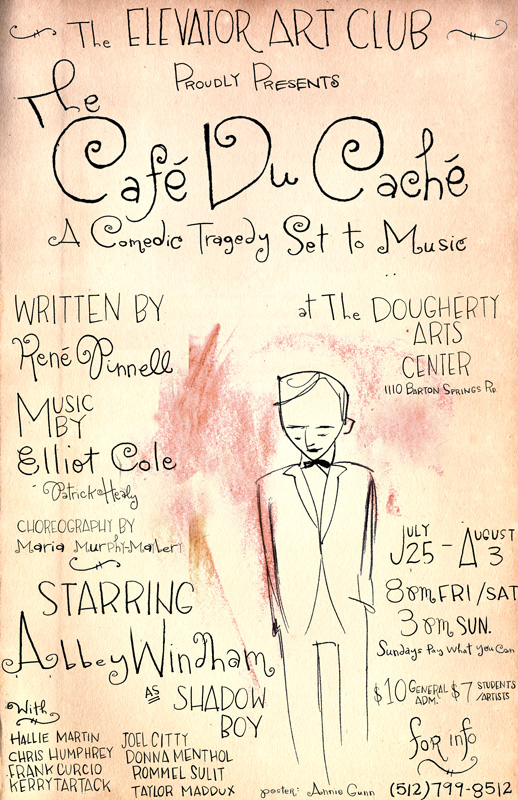 The ELEVATOR ART CLUB
PROUDLY PRESENTS
The
Café Du Caché
A Comedic Tragedy Set to Music
WRITTEN BY
René Pinnell
MUSIC
BY
Elliot Cole
Patrick Healy
CHOREOGRAPHY BY
Maria Murphy-Mallery
STARRING
Abbey Windham
AS SHADOW
BOY
With
HALLIE MARTIN
CHRIS HUMPHREY
FRANK CURCIO
KERRY TARTACK
JOEL CITTY
DONNA MENTHOL
ROMMEL SULIT
TAYLOR MADDUX
at The DOUGHERTY
ARTS
CENTER
1110 BARTON SPRINGS RD.
JULY 25 - AUGUST 3
8pm FRI/SAT
3pm SUN.
Sundays Pay What You Can
$10 GENERAL ADM. $7 STUDENTS /ARTISTS
for info
(512)799-8512
poster: Annie Gunn